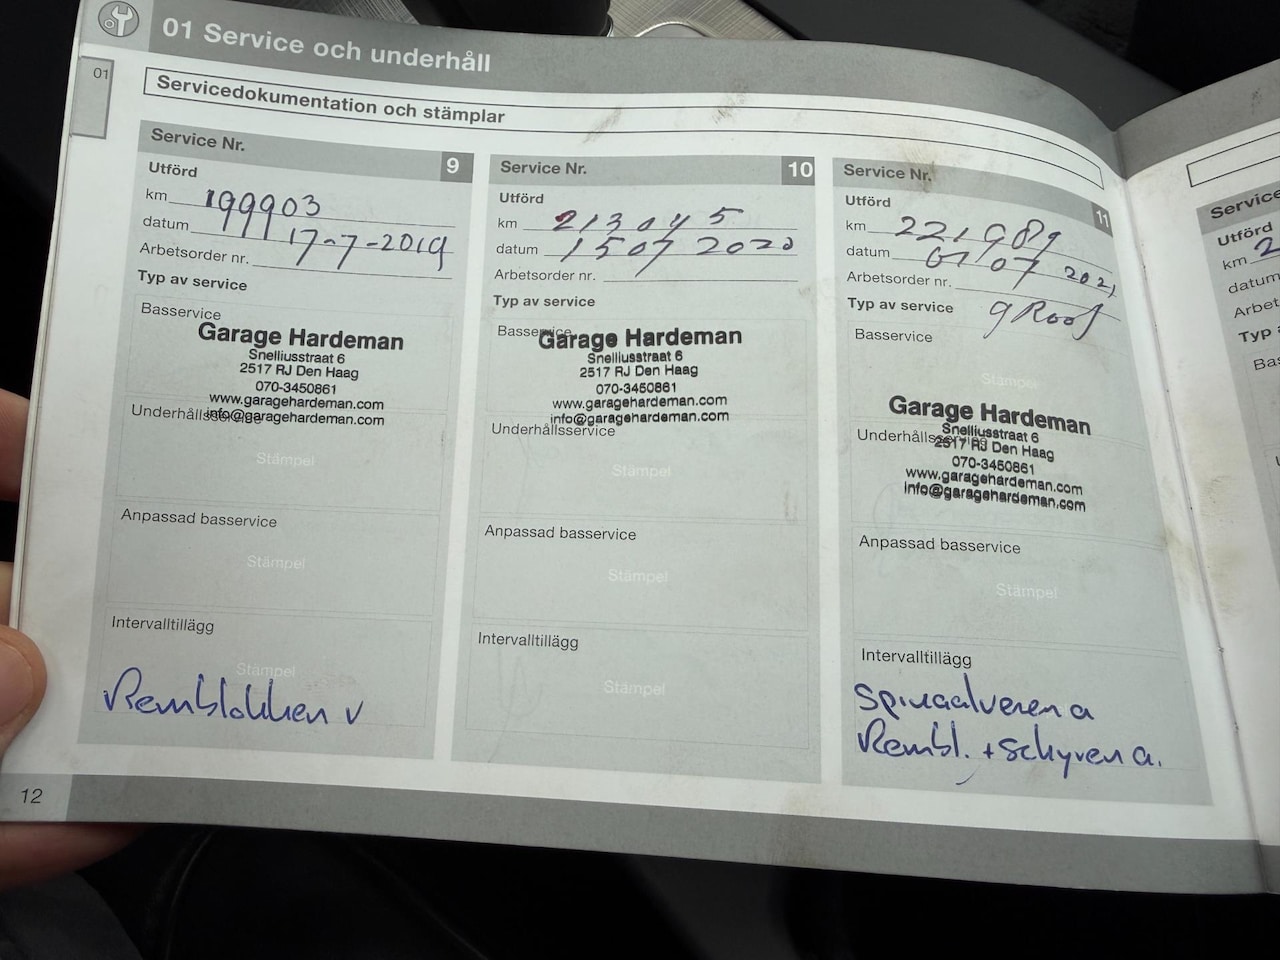 01 Service och underhåll
01
Servicedokumentation och stämplar
Service Nr. 9
Utförd
km 199903
datum 17-7-2019
Arbetsorder nr.
Typ av service
Basservice
Garage Hardeman
Snelliusstraat 6
2517 RJ Den Haag
070-3450861
www.garagehardeman.com
info@garagehardeman.com
Underhållsservice
Stämpel
Anpassad basservice
Stämpel
Intervalltillägg
Stämpel
Remblokken v
Service Nr. 10
Utförd
km 213045
datum 1507 2020
Arbetsorder nr.
Typ av service
Basservice
Garage Hardeman
Snelliusstraat 6
2517 RJ Den Haag
070-3450861
www.garagehardeman.com
info@garagehardeman.com
Underhållsservice
Stämpel
Anpassad basservice
Stämpel
Intervalltillägg
Stämpel
Service Nr. 11
Utförd
km 221989
datum 01 07 2021
Arbetsorder nr.
Typ av service groot
Basservice
Stämpel
Garage Hardeman
Snelliusstraat 6
Underhållsservice
2517 RJ Den Haag
070-3450861
www.garagehardeman.com
info@garagehardeman.com
Anpassad basservice
Stämpel
Intervalltillägg
Spiraalveren a
Rembl. + schyven a.
12
Service
Utförd
km 2
datum
Arbet
Typ a
Bas